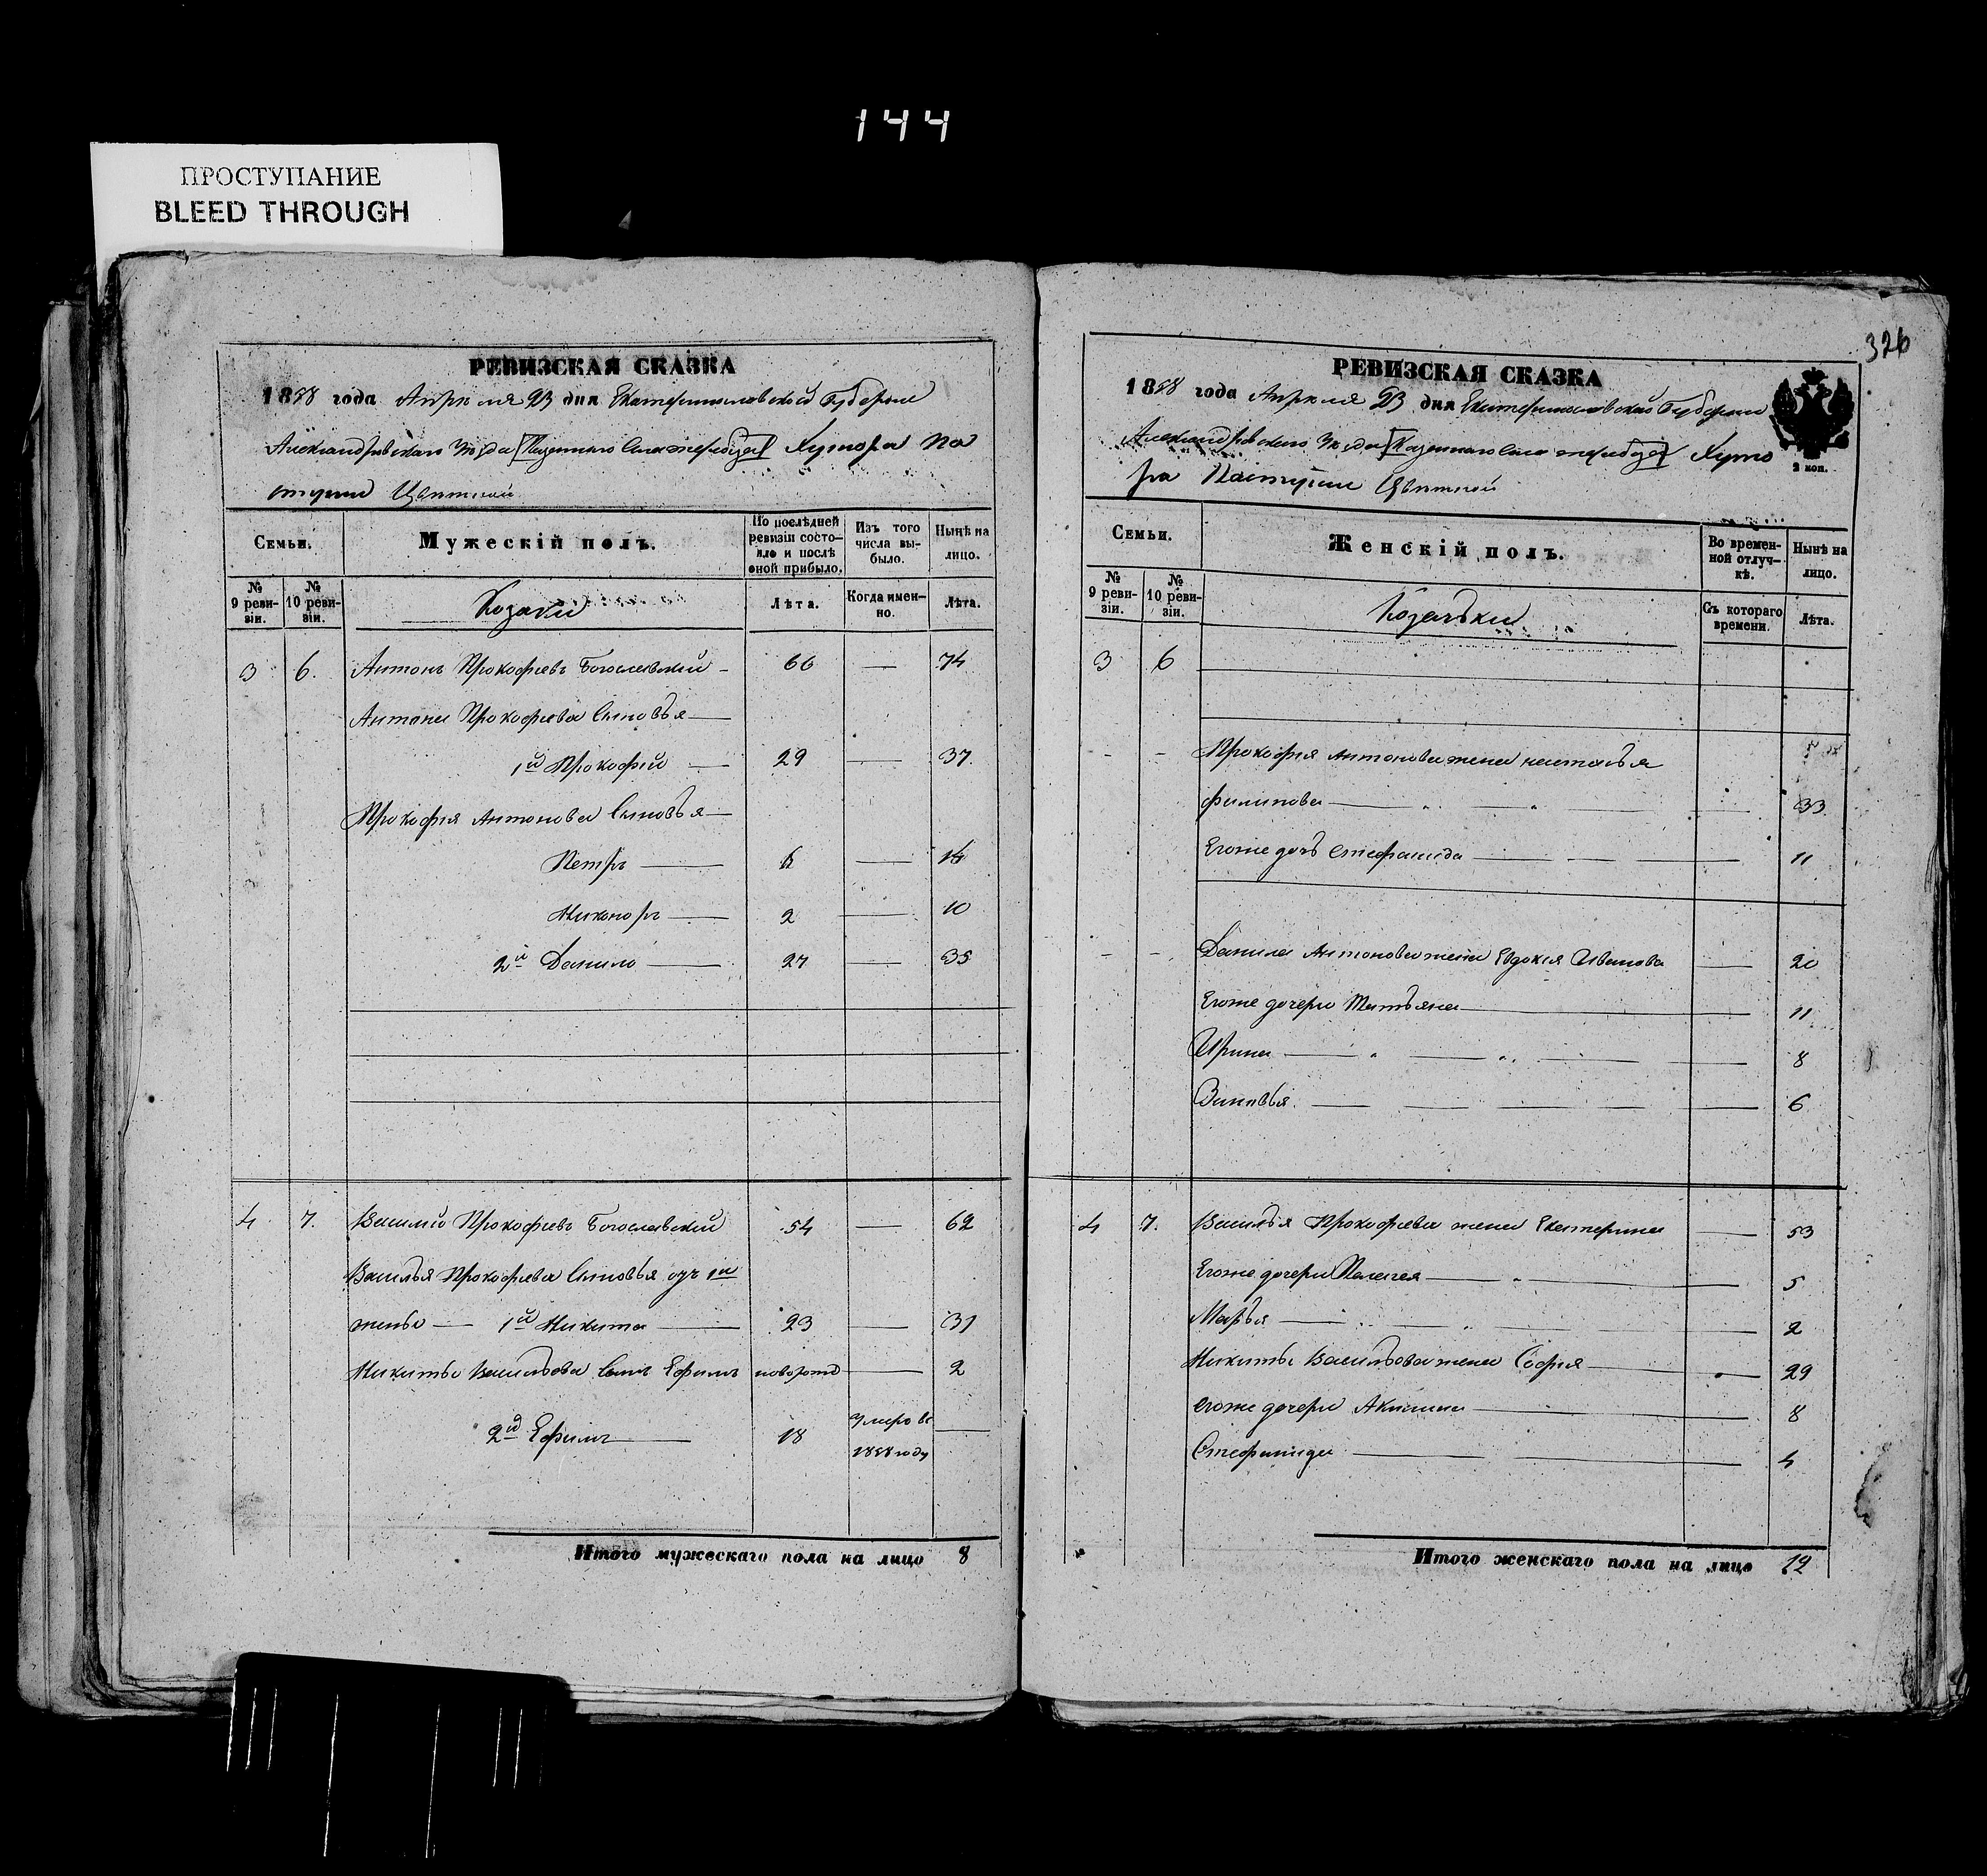 144
ПРОСТУПАНИЕ
BLEED THROUGH
РЕВИЗСКАЯ СКАЗКА
1858 года Апреля 23 дня Екатеринославской Губернии
Александровского Уезда Казенного Села Жеребца Хутора Па
стушей Цветной
Семьи.
Мужескій полъ.
По послѣдней ревизіи состояло и послѣ оной прибыло.
Изъ того числа выбыло.
Нынѣ на лицо.
№ 9 ревизіи.
№ 10 ревизіи.
Козаки
Лѣта.
Когда именно.
Лѣта.
3 6. Антонъ Прокофьевъ Богославский 66 — 74
Антона Прокофьева Сыновья
1й Прокофий — 29 — 37.
Прокофия Антонова Сыновья
Петръ — 6 — 14
Никоноръ — 2 — 10
2й Данило — 27 — 35
4 7. Василий Прокофьевъ Богославский 54 — 62
Василья Прокофьева Сыновья отъ 1й
жены — 1й Никита — 23 — 31
Никиты Васильева Сынъ Ефимъ новорожд — 2
2й Ефимъ — 18 умеръ въ 1858 году —
Итого мужескаго пола на лицо 8
326
РЕВИЗСКАЯ СКАЗКА
1858 года Апреля 23 дня Екатеринославской Губернии
Александровского Уезда Казенного Села Жеребца Хуто
ра Пастушей Цветной
2 коп.
Семьи.
Женскій полъ.
Во временной отлучкѣ.
Нынѣ на лицо.
№ 9 ревизіи.
№ 10 ревизіи.
Козачьки
Съ котораго времени.
Лѣта.
3 6
- - Прокофия Антонова жена наталья
филипова — 33
Егоже дочь Стефанида — 11
- - Данила Антонова жена Евдокия Иванова — 20
Егоже дочери Татьяна — 11
Ирина — 8
Зиновья — 6
4 7. Василья Прокофьева жена Екатерина — 53
Егоже дочери Пелагея — 5
Марья — 2
Никиты Васильева жена София — 29
егоже дочери Акилина — 8
Стефанида — 4
Итого женскаго пола на лицо 12